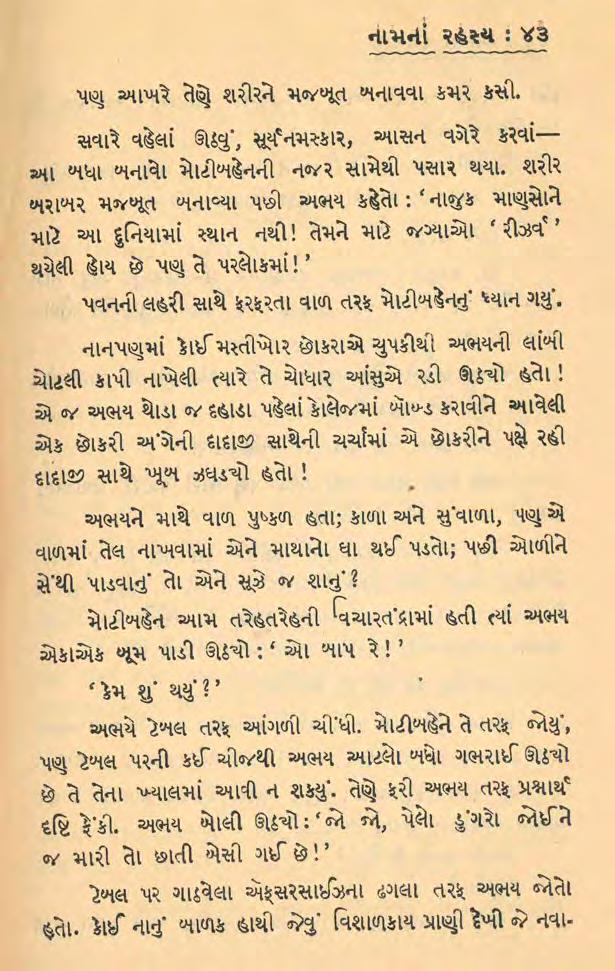 નામનાં રહસ્ય : ૪૩
પણ આખરે તેણે શરીરને મજબૂત બનાવવા કમર કસી.
સવારે વહેલાં ઊઠવું, સૂર્યનમસ્કાર, આસન વગેરે કરવાં—
આ બધા બનાવો મોટીબહેનની નજર સામેથી પસાર થયા. શરીર
બરાબર મજબૂત બનાવ્યા પછી અભય કહેતો : ‘નાજુક માણુસોને
માટે આ દુનિયામાં સ્થાન નથી! તેમને માટે જગ્યાઓ ‘રીઝર્વ’
થયેલી હોય છે પણ તે પરલોકમાં!’
પવનની લહરી સાથે ફરફરતા વાળ તરફ મોટીબહેનનું ધ્યાન ગયું.
નાનપણમાં કોઈ મસ્તીખોર છોકરાએ ચુપકીથી અભયની લાંબી
ચોટલી કાપી નાખેલી ત્યારે તે ચોધાર આંસુએ રડી ઊઠ્યો હતો!
એ જ અભય થોડા જ દહાડા પહેલાં કોલેજમાં બૉબ્ડ કરાવીને આવેલી
એક છોકરી અંગેની દાદાજી સાથેની ચર્ચામાં એ છોકરીને પક્ષે રહી
દાદાજી સાથે ખૂબ ઝઘડ્યો હતો!
અભયને માથે વાળ પુષ્કળ હતા; કાળા અને સુંવાળા, પણ એ
વાળમાં તેલ નાખવામાં એને માથાનો ઘા થઈ પડતો; પછી ઓળીને
સેંથી પાડવાનું તો એને સૂઝે જ શાનું?
મોટીબહેન આમ તરેહતરેહની વિચારતંદ્રામાં હતી ત્યાં અભય
એકાએક બૂમ પાડી ઊઠ્યો : ‘ઓ બાપ રે!’
‘કેમ શું થયું?’
અભયે ટેબલ તરફ આંગળી ચીંધી. મોટીબહેને તે તરફ જોયું,
પણ ટેબલ પરની કઈ ચીજથી અભય આટલો બધો ગભરાઈ ઊઠ્યો
છે તે તેના ખ્યાલમાં આવી ન શક્યું. તેણે ફરી અભય તરફ પ્રશ્નાર્થ
દૃષ્ટિ ફેંકી. અભય બોલી ઊઠ્યો : ‘જો જો, પેલો ડુંગરો જોઈને
જ મારી તો છાતી બેસી ગઈ છે!’
ટેબલ પર ગોઠવેલા ઍક્સરસાઈઝના ઢગલા તરફ અભય જોતો
હતો. કોઈ નાનું બાળક હાથી જેવું વિશાળકાય પ્રાણી દેખી જે નવા-